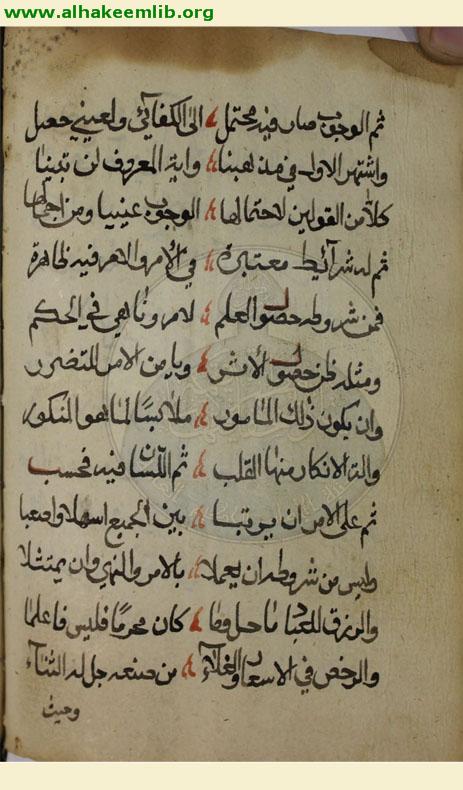 www.alhakeemlib.org
ثم الوجوب صار فيه محتمل الى الكفائي ولعيني جعل
واشتهر الاول في مذهبنا واية المعروف لن تبينا
كلا من القولين لاحتمالها الوجوب عينيا ومن
ثم له شرائط معتبرة في الأمر والامر فيه ظاهرة
فمن شروطه حصول العلم لامر وناهي في الحكم
ومثله ظن حصول الأثر ويامن الامر للتضرر
وان يكون ذلك المامور ملابسا لما هو المنكور
والة الانكار منها القلب ثم اللسان فيه فحسب
ثم على الامر ان يرتبا بين الجميع اسهلا واصعبا
وليس من شروطه ان يعملا بالأمر والنهي وان يمتثلا
والرزق للعباد ما حل وما كان محرما فليس فاعلما
والرخص في الاسعار والغلاء من صنعه جل له الثناء
وحيث